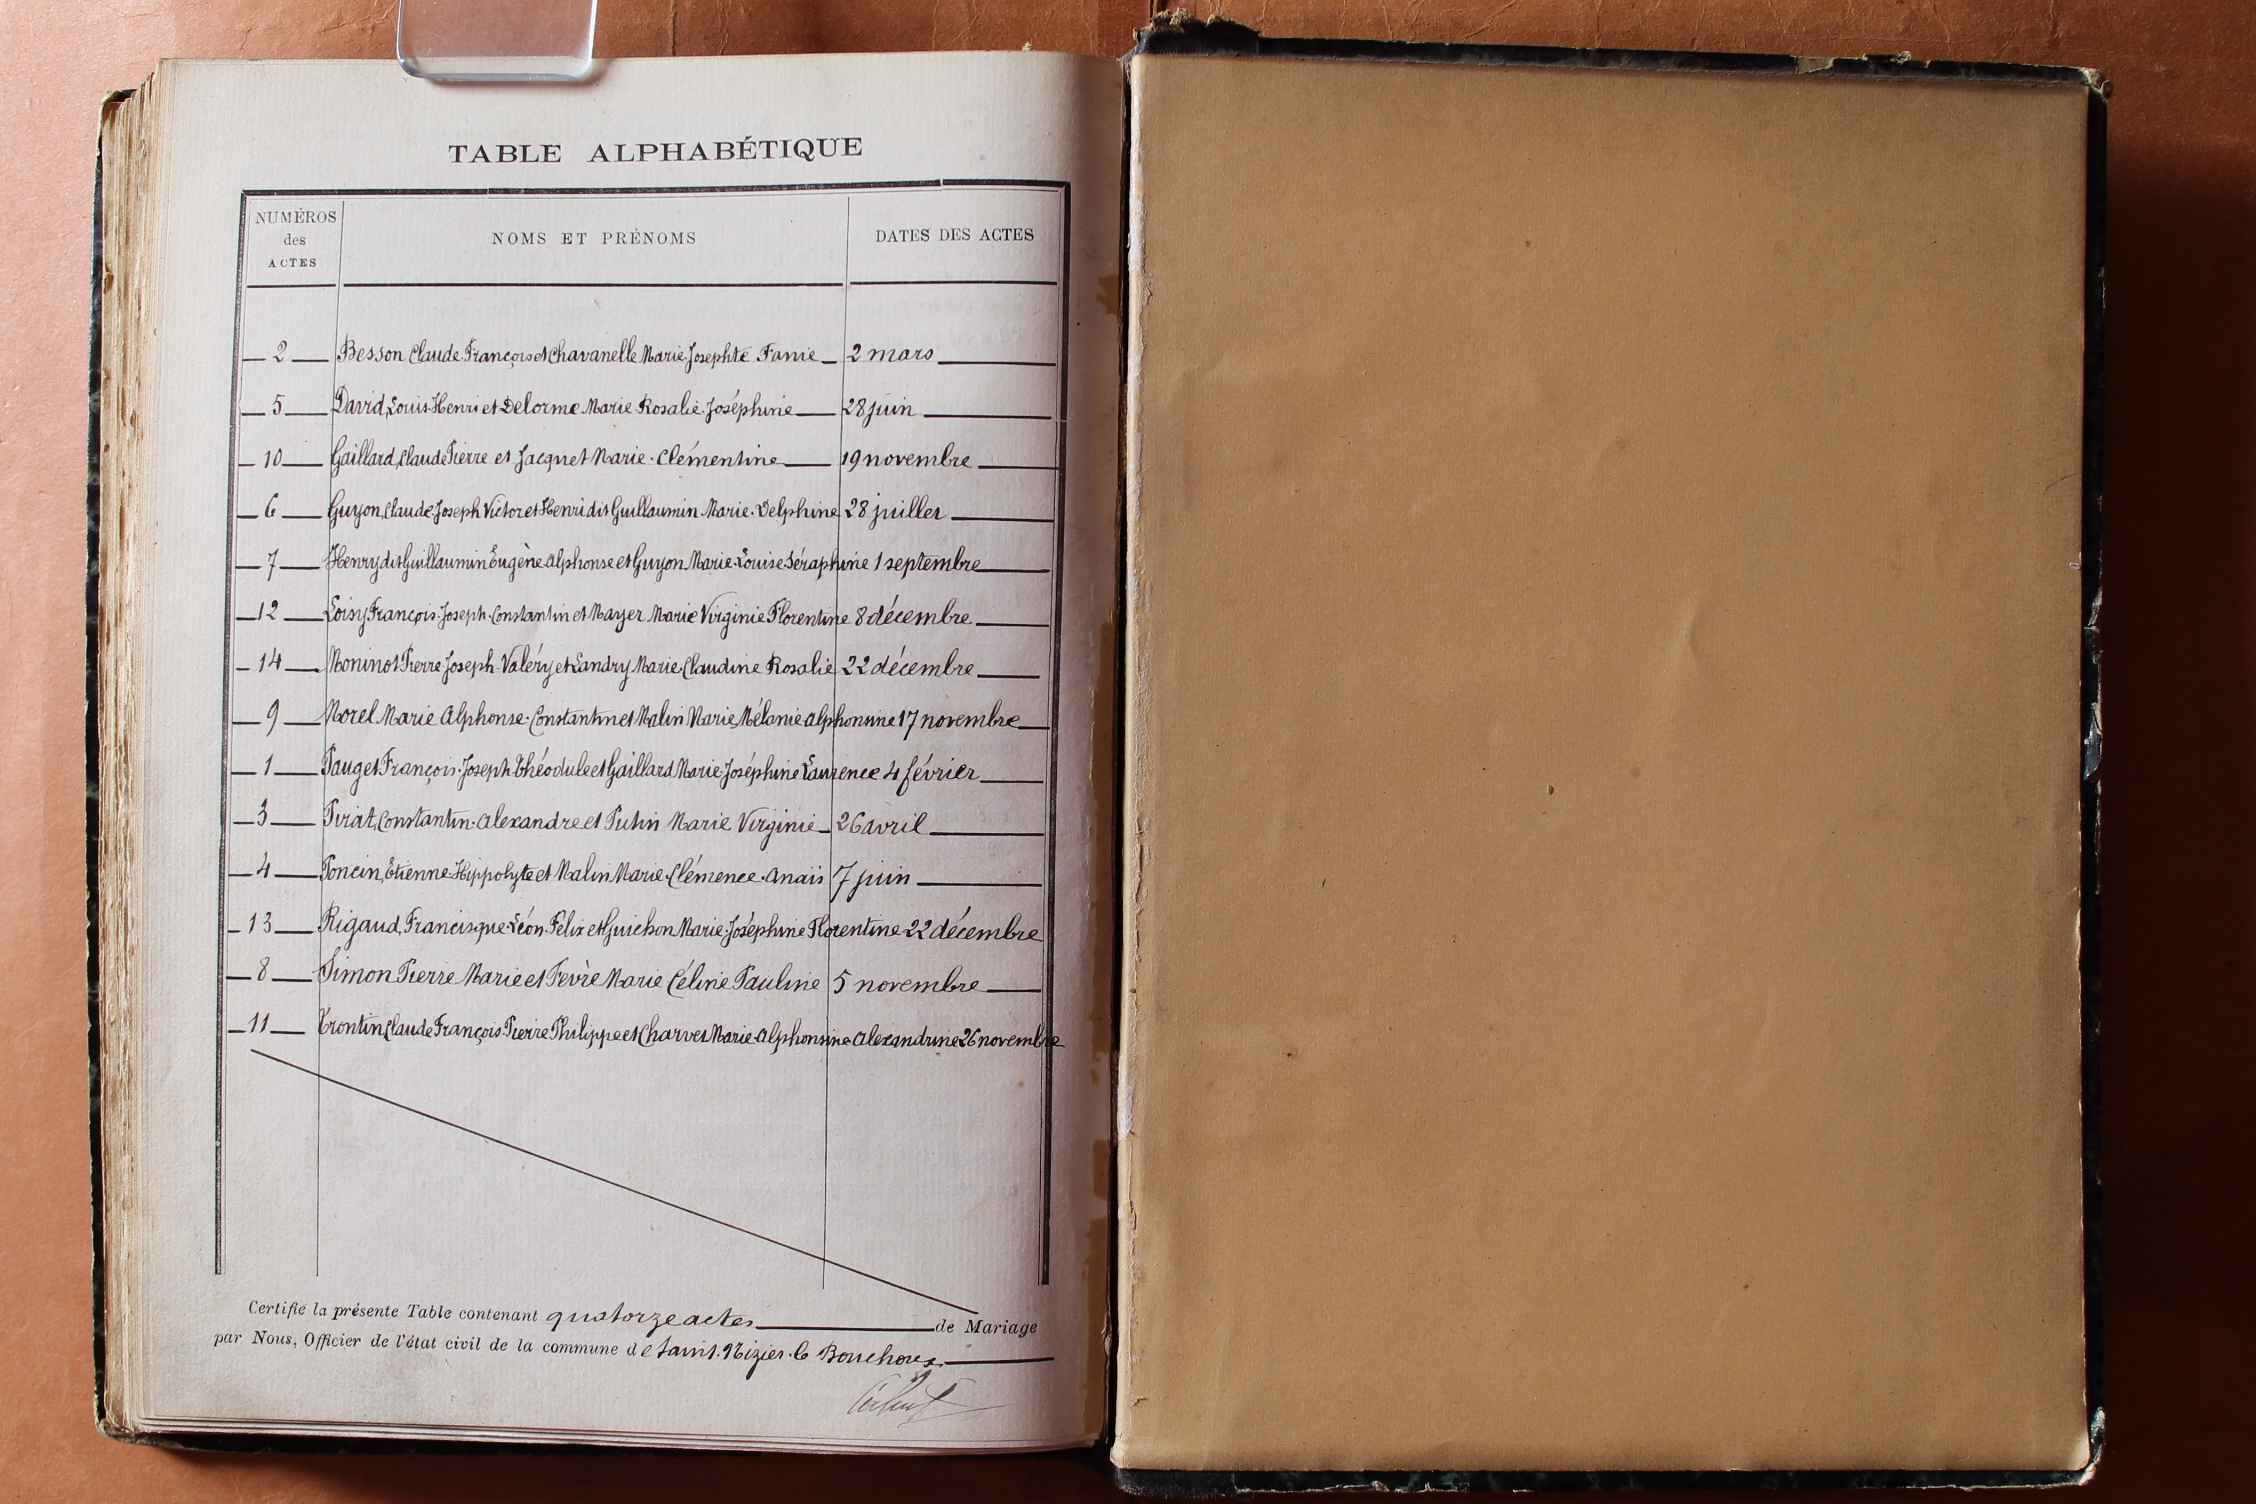 TABLE ALPHABÉTIQUE
NUMÉROS des ACTES NOMS ET PRÉNOMS DATES DES ACTES
2 Besson Claude François et Chavanelle Marie Josephte Fanie 2 mars
5 David, Louis Henri et Delorme Marie Rosalie Joséphine 28 juin
10 Gaillard, Claude Pierre et Jacquet Marie Clémentine 19 novembre
6 Guyon, Claude Joseph Victor et Henri dit Guillaumin Marie Delphine 28 juillet
7 Henry dit Guillaumin Eugène Alphonse et Guyon Marie Louise Séraphine 1 septembre
12 Loisy François Joseph Constantin et Mayer Marie Virginie Florentine 8 décembre
14 Moninot Pierre Joseph Valéry et Landry Marie Claudine Rosalie 22 décembre
9 Morel Marie Alphonse Constantin et Malin Marie Mélanie Alphonsine 17 novembre
1 Pauget François Joseph Théodule et Gaillard Marie Joséphine Laurence 4 février
3 Pirat, Constantin Alexandre et Putin Marie Virginie 26 avril
4 Poncin, Etienne Hippolyte et Malin Marie Clémence Anaïs 7 juin
13 Rigaud, Francisque Léon Félix et Guichon Marie Joséphine Florentine 22 décembre
8 Simon Pierre Marie et Fevre Marie Céline Pauline 5 novembre
11 Trontin Claude François Pierre Philippe et Charvet Marie Alphonsine Alexandrine 26 novembre
Certifié la présente Table contenant quatorze actes de Mariage
par Nous, Officier de l'état civil de la commune de Saint-Nizier-le Bouchoux